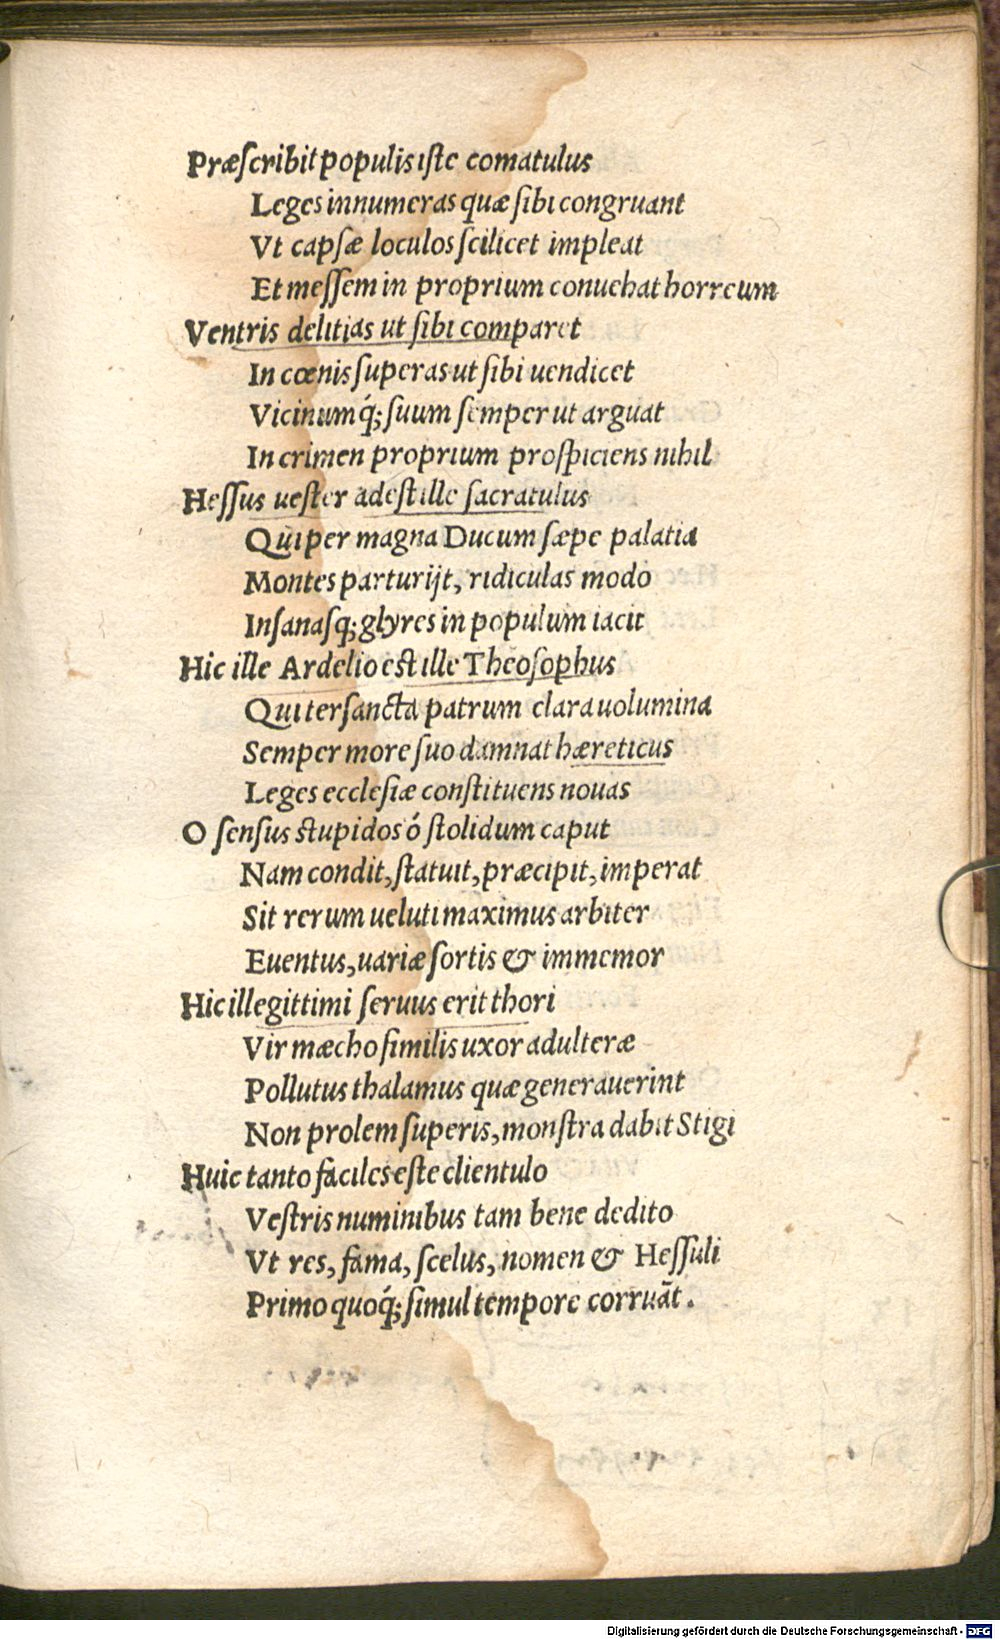 Præſcribit populis iſte comatulus
Leges innumeras quæ ſibi congruant
Vt capſæ loculos ſcilicet impleat
Et meſſem in proprium conuehat horreum
Ventris delitias ut ſibi comparet
In cœnis ſuperas ut ſibi uendicet
Vicinumq́; ſuum ſemper ut arguat
In crimen proprium proſpiciens nihil
Heſſus ueſter adeſt ille ſacratulus
Qui per magna Ducum ſæpe palatia
Montes parturijt, ridiculas modo
Inſanaſq; glyres in populum iacit
Hic ille Ardelio eſt ille Theoſophus
Qui terſancta patrum clara uolumina
Semper more ſuo damnat hæreticus
Leges eccleſiæ conſtituens nouas
O ſenſus ſtupidos ó ſtolidum caput
Nam condit, ſtatuit, præcipit, imperat
Sit rerum ueluti maximus arbiter
Euentus, uariæ ſortis & immemor
Hic illegittimi ſeruus erit thori
Vir mæcho ſimilis uxor adulteræ
Pollutus thalamus quæ generauerint
Non prolem ſuperis, monſtra dabit Stigi
Huic tanto faciles eſte clientulo
Veſtris numinibus tam bene dedito
Vt res, fama, ſcelus, nomen & Heſſuli
Primo quoq́; ſimul tempore corruãt.
Digitalisierung gefördert durch die Deutsche Forschungsgemeinschaft - DFG